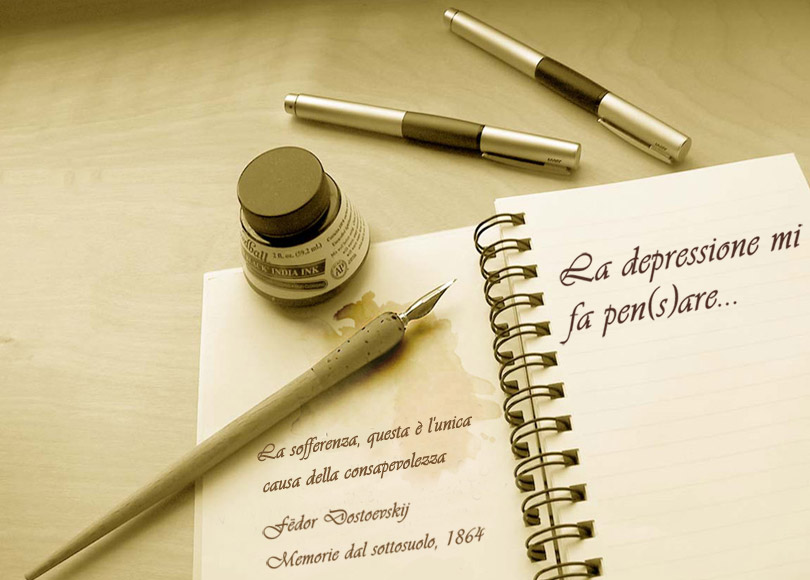 La depressione mi
fa pen(s)are...
La sofferenza, questa è l'unica
causa della consapevolezza
Fëdor Dostoevskij
Memorie dal sottosuolo, 1864
2 fl. oz. (59.2 mL)
INDIA INK
AP